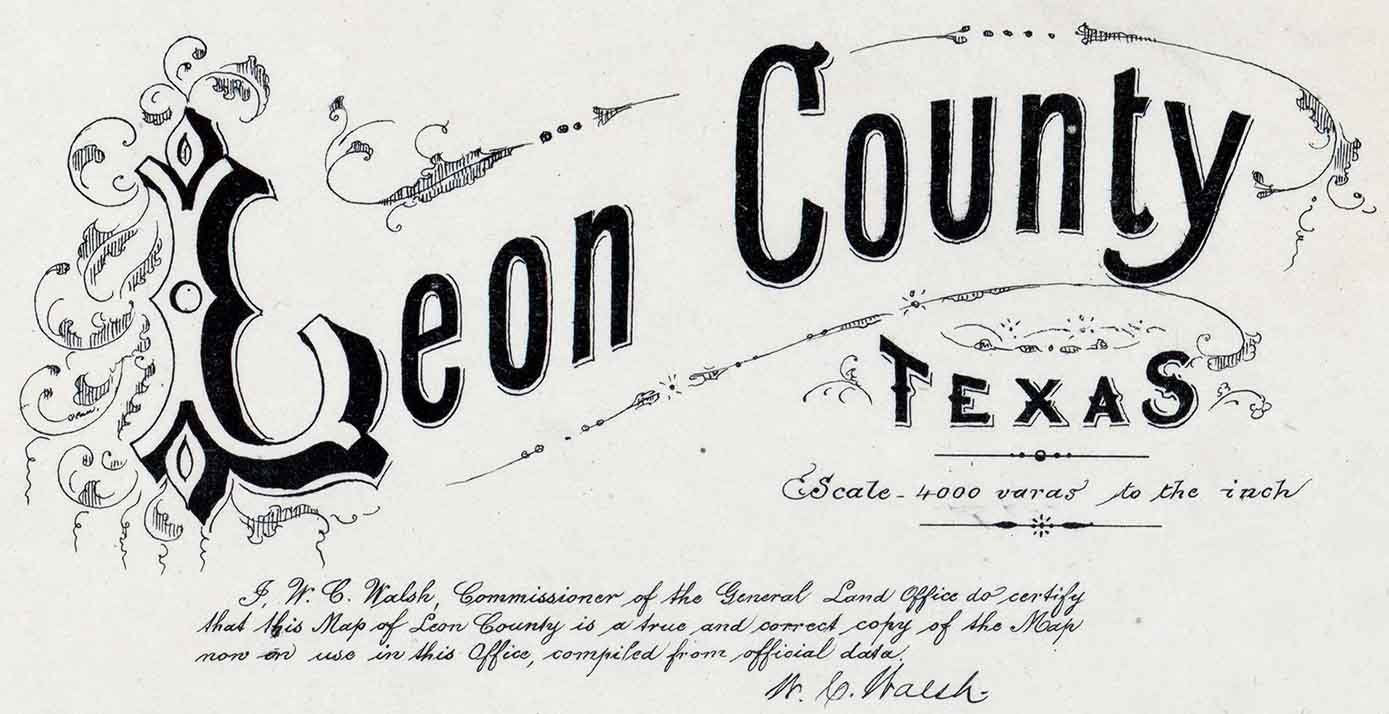 Leon County
TEXAS
Scale - 4000 varas to the inch
I, W. C. Walsh, Commissioner of the General Land Office do certify
that this Map of Leon County is a true and correct copy of the Map
now in use in this Office, compiled from official data.
W. C. Walsh